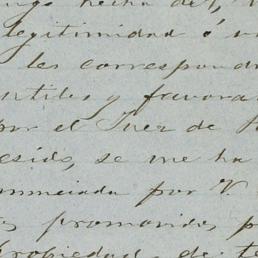 hecha de
legitimidad ó
les correspond
útiles y favora
por el Juez de
se me ha
nunciada por V.
promovidos p
propiedad de te